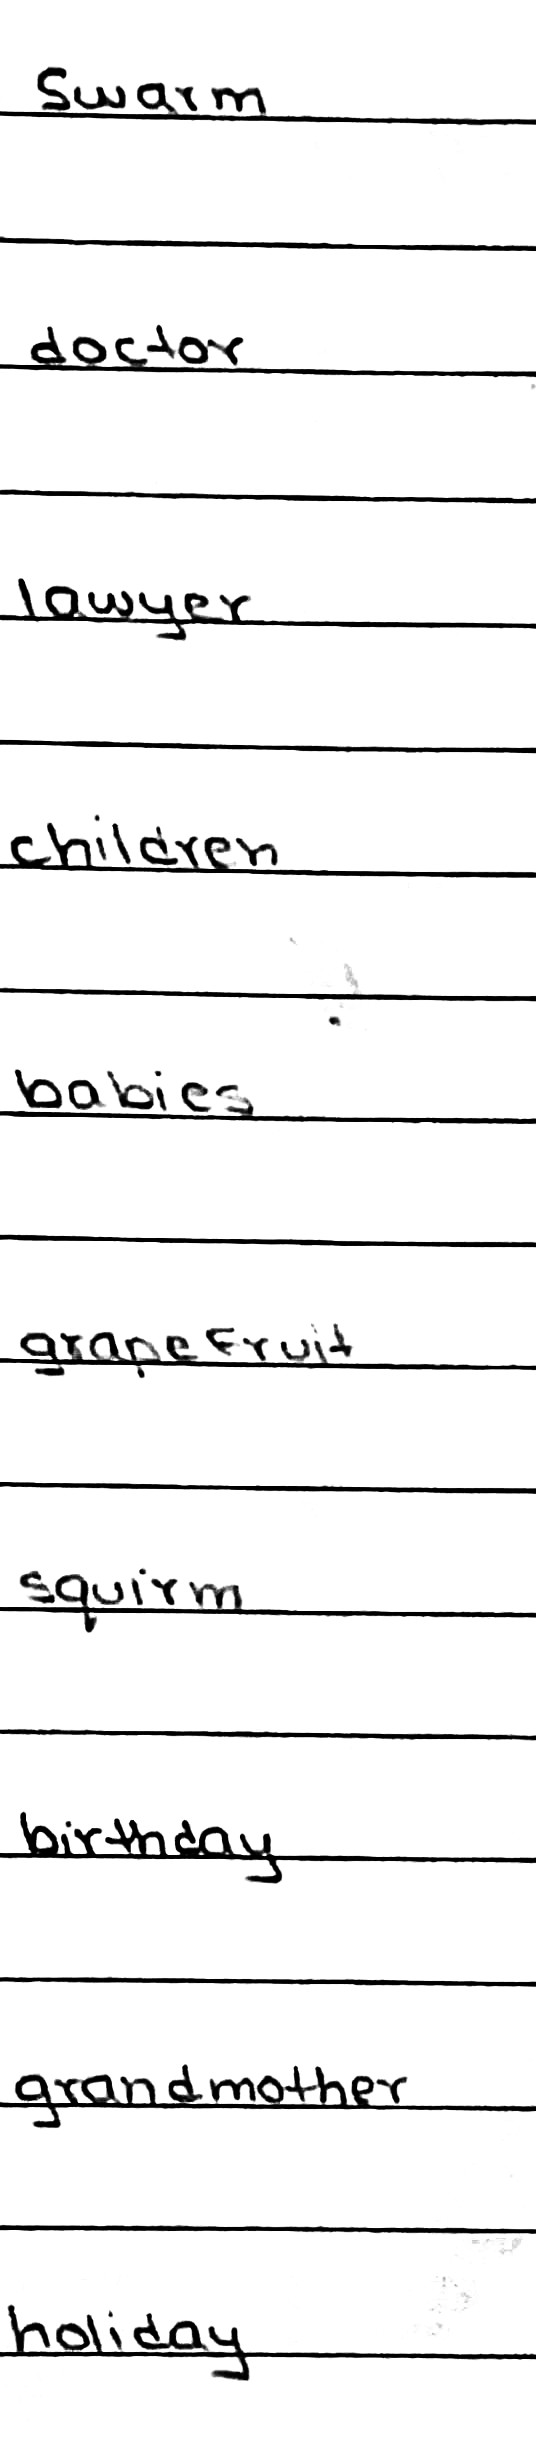 Swarm
doctor
lawyer
children
babies
grapefruit
squirm
birthday
grandmother
holiday